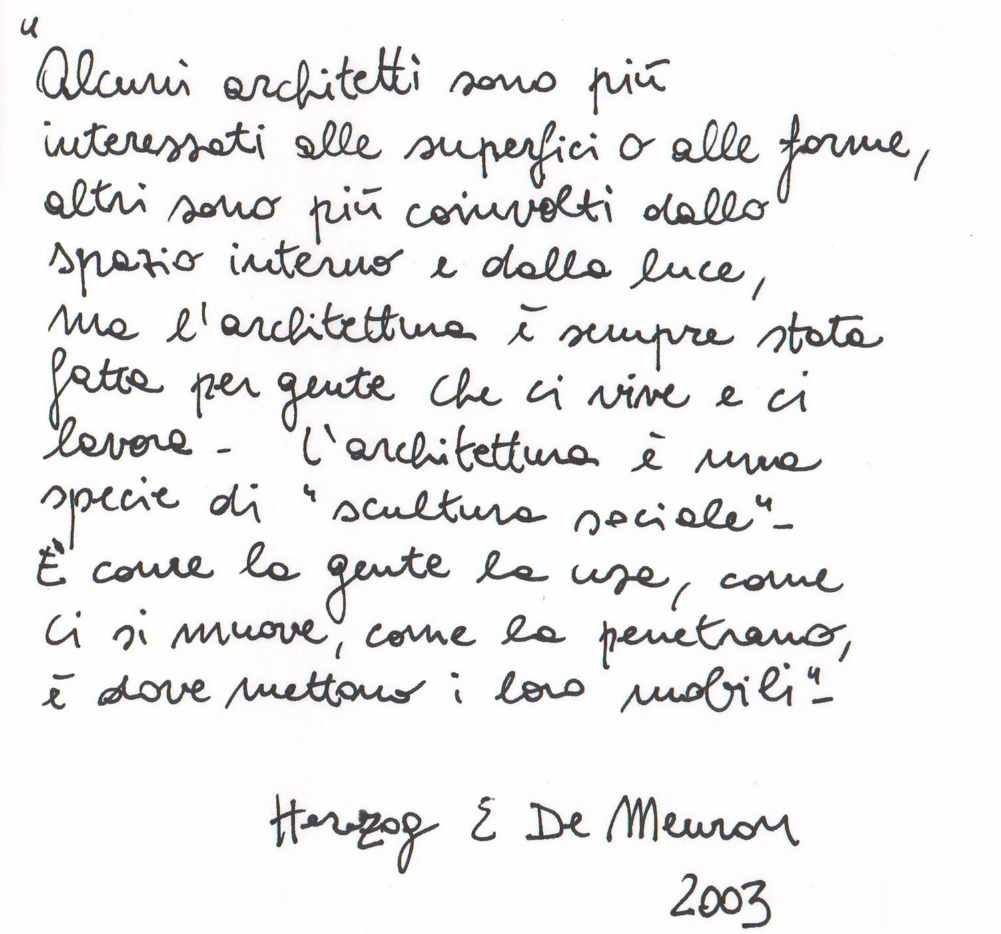 "Alcuni architetti sono più
interessati alle superfici o alle forme,
altri sono più coinvolti dallo
spazio interno e dalla luce,
ma l'architettura è sempre stata
fatta per gente che ci vive e ci
lavora - l'architettura è una
specie di "scultura sociale"-
È come la gente la usa, come
ci si muove, come la penetrano,
è dove mettono i loro mobili"-
Herzog E De Meuron
2003